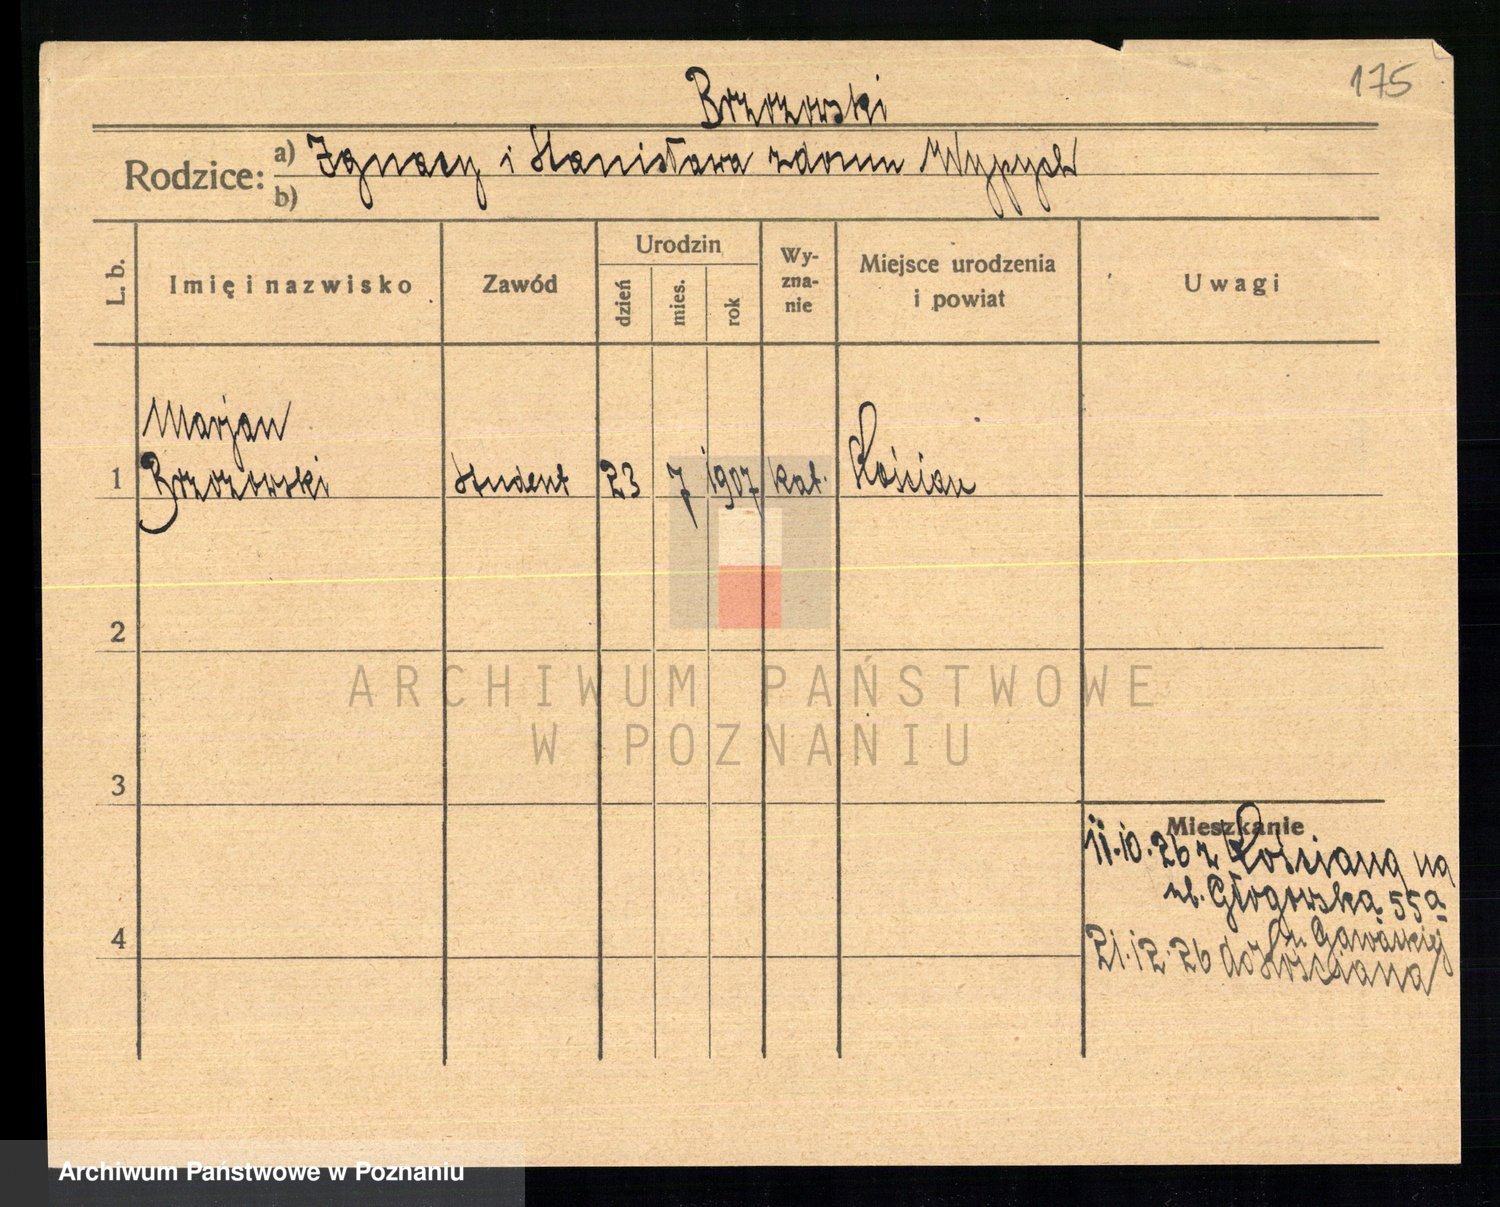 175
Brzozowski
Rodzice: a) Ignacy i Stanisława zdomu Wypych
b)
L. b. Imię i nazwisko Zawód Urodzin dzień mies. rok Wyznanie Miejsce urodzenia i powiat Uwagi
Marjan
1 Brzozowski student 23 7 1907 kat. Kościan
2
ARCHIWUM PAŃSTWOWE
W POZNANIU
3
Mieszkanie
11.10.26 z Kościana na
ul. Głogowska 55a
u
21.12.26 do Kościana
4
Archiwum Państwowe w Poznaniu